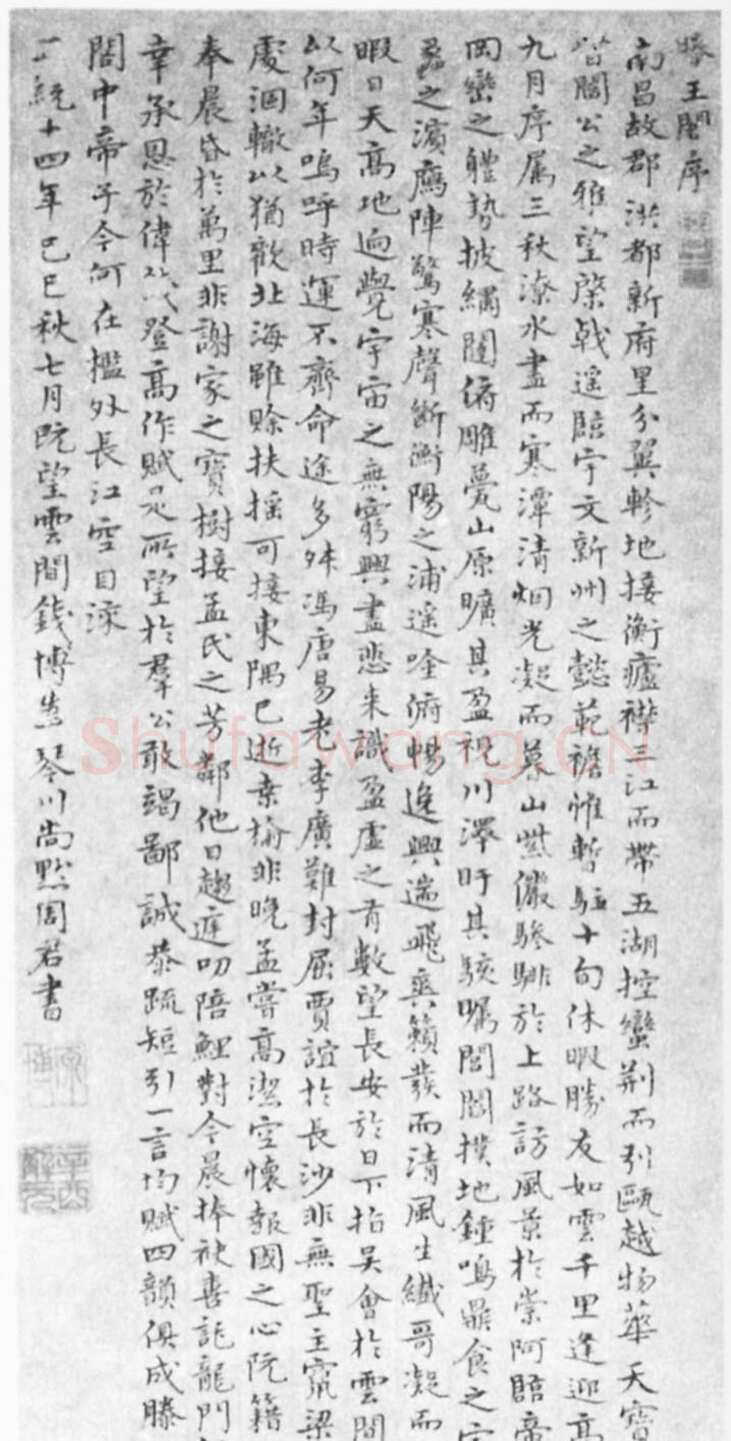 滕王閣序
南昌故郡洪都新府星分翼軫地接衡廬襟三江而帶五湖控蠻荊而引甌越物華天寶
督閻公之雅望棨戟遥臨宇文新州之懿範襜帷暫駐十旬休暇勝友如雲千里逢迎高
九月序属三秋潦水盡而寒潭清烟光凝而暮山紫儼驂騑於上路訪風景於崇阿臨帝
岡巒之軆勢披繡闥俯雕甍山原曠其盈視川澤盱其駭矚閭閻撲地鍾鳴鼎食之
蠡之濱鴈陣驚寒聲斷衡陽之浦遥唫俯暢逸興遄飛爽籟發而清風生纖哥凝而
暇日天高地逈覺宇宙之無窮興盡悲来識盈虚之有數望長安於日下指吳會於雲間
以何年嗚呼時運不齊命途多舛馮唐易老李廣難封屈賈誼於長沙非無聖主竄梁
處涸轍以猶歡北海雖賒扶揺可接東隅已逝桑榆非晚孟嘗高潔空懷報國之心阮籍
奉晨昏於萬里非謝家之寶樹接孟氏之芳鄰他日趨庭叨陪鯉對今晨捧袂喜託龍門
幸承恩於偉餞登髙作賦是所望於羣公敢竭鄙誠恭疏短引一言均賦四韻俱成滕
閣中帝子今何在檻外長江空自流
正統十四年己巳秋七月既望雲間錢博為琴川尚默周君書
Shufawang.CN